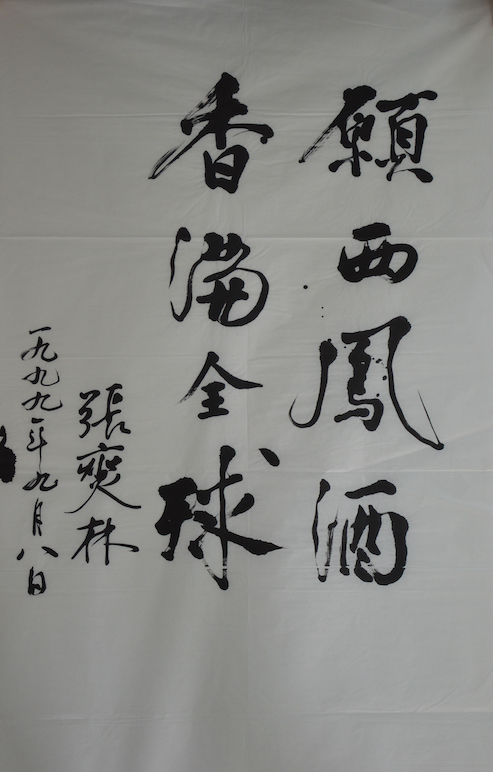 願西鳳酒
香滿全球
張燮林
一九九九年九月八日